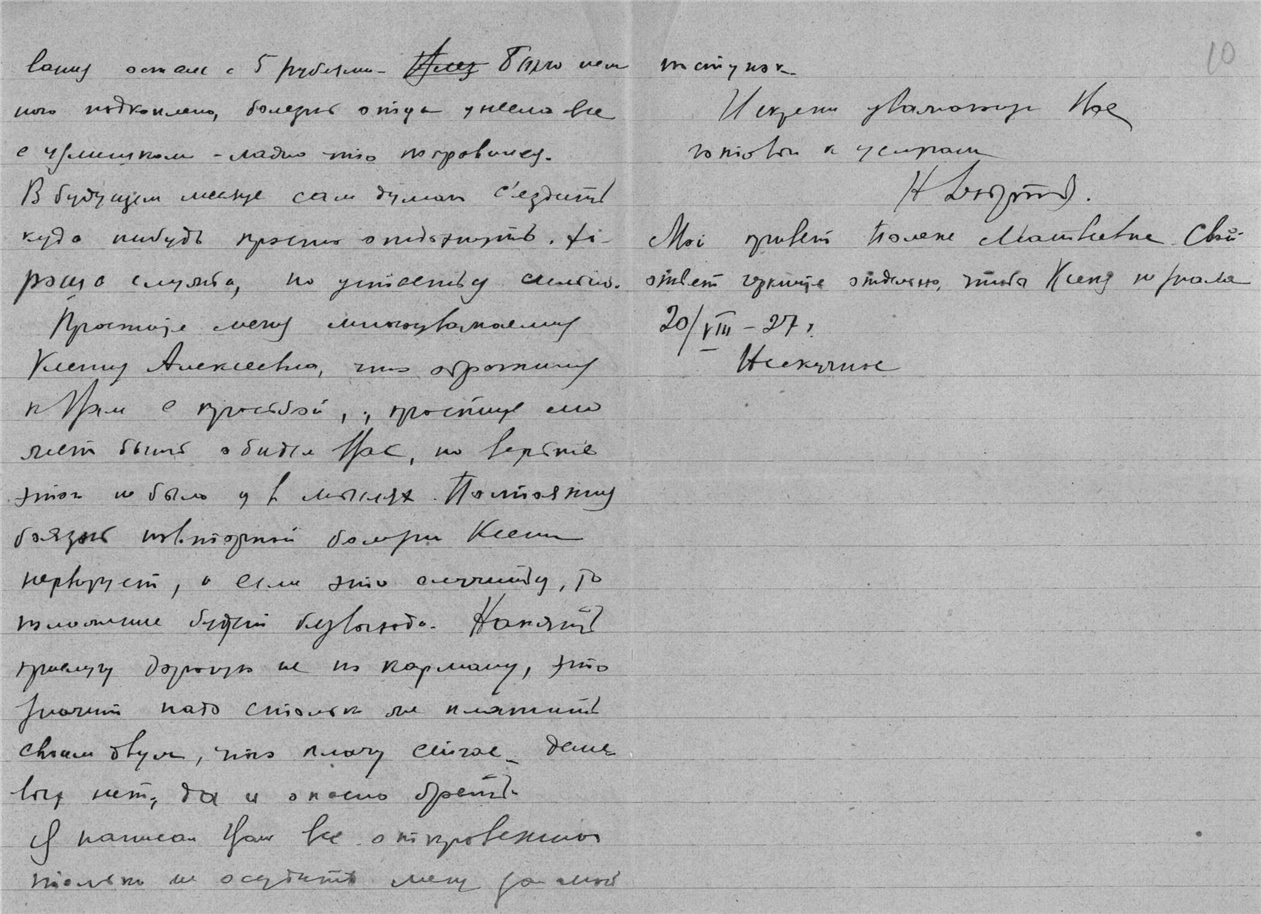 остался с 5 рублями. Было нем
ного подкоплено, болезнь отца унесла все
с излишком - ладно что поправился.
В будущем месяце сам думаю съездить
куда нибудь просто отдохнуть. Хо-
роша служба, но устаешь сильно.
Простите меня многоуважаемая
Ксения Алексеевна, что обращаюсь
к Вам с просьбой, и простите мо
жет быть обидел Вас, но верьте
этого не было и в мыслях. Постоянная
боязнь повторной болезни Ксении
нервирует, а если это случится, то
положение будет безвыходно. Нанять
прислугу дорогую не по карману, это
значит надо столько же платить
своим двум, что плачу сейчас, деше
вых нет, да и опасно брать.
Я написал Вам все откровенно
только не осудите меня за мой
10
поступок.
Искренне уважающий Вас
готовый к услугам
Н
Мой привет Полене Матвеевне. Свой
ответ черкните отдельно, чтобы Ксения не знала
20/VIII - 27 г.
Нескучное